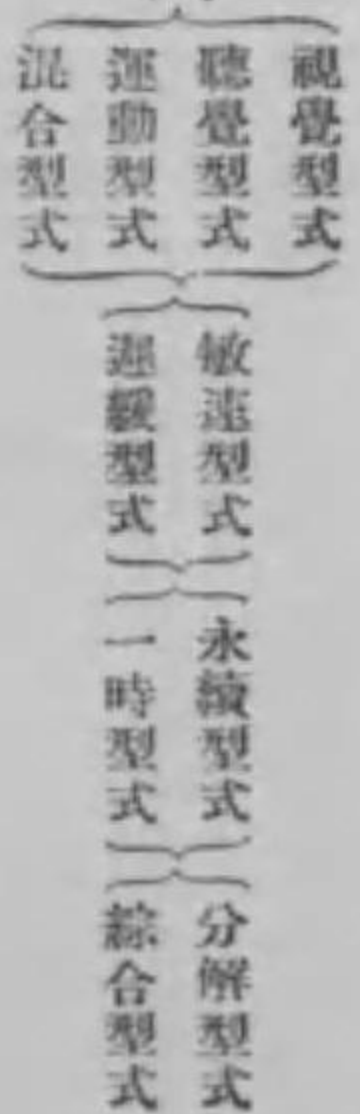 視覺型式
聽覺型式
運動型式
混合型式
敏速型式
遲緩型式
永續型式
一時型式
分解型式
綜合型式